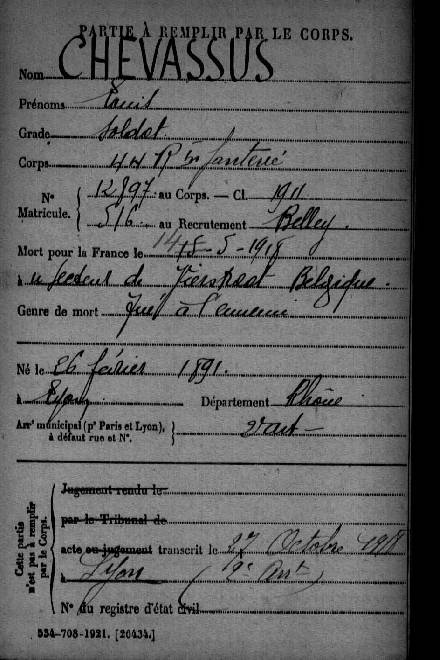 PARTIE À REMPLIR PAR LE CORPS.
Nom CHEVASSUS
Prénoms Louis
Grade Soldat
Corps 44 R Infanterie
N° Matricule. { 12897 au Corps. — Cl. 1911
516 au Recrutement Belley.
Mort pour la France le 15-5-1918
à secteur de Belgique.
Genre de mort Tué à l'ennemi
Né le 26 février 1891.
à Lyon Département Rhône
Arr' municipal (p' Paris et Lyon), à défaut rue et N°. } 2 art
Cette partie n'est pas à remplir par le Corps.
Jugement rendu le
par le Tribunal de
acte ou jugement transcrit le 27 Octobre
à Lyon (2e Arrt)
N° du registre d'état civil
534-708-1921. [26434.]